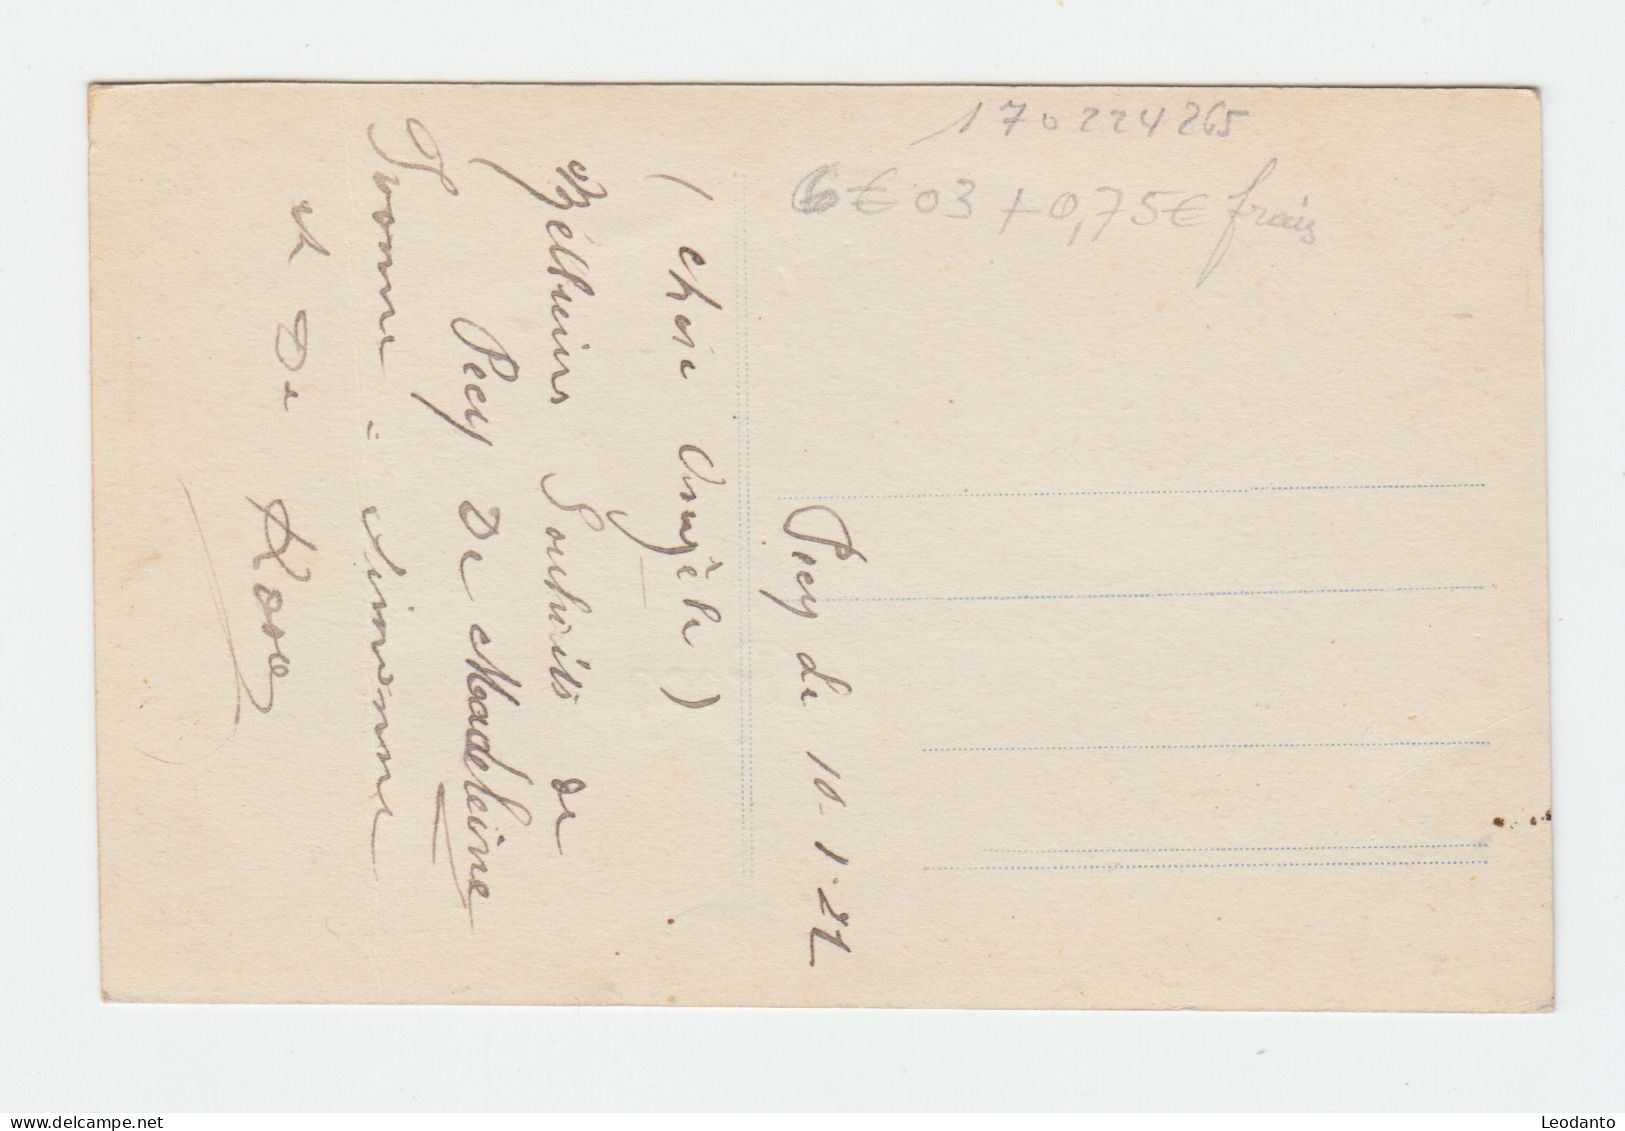 170224265
6€03 + 0,75€ frais
Precy le 10-1-22
(chère Angèle)
Meilleurs Souhaits de
Precy De Madeleine
Yvonne - Simonne
et De Rose
Leodanto